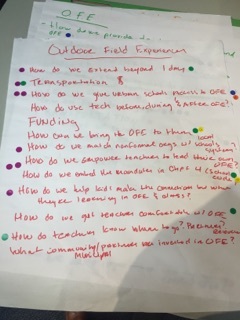 OFE
Outdoor Field Experiences
How do we extend beyond 1 day
Transportation $
How do we give urban schools access to OFE
How do we use tech before, during & AFTER OFE?
FUNDING
How can we bring OFE to them
How do we match nonformal orgs w/ local school systems
How do we empower teachers to lead their own OFE?
How do we embed the mandates in Chpt 4 (school code)
How do we help kids make the connections btw what
they're learning in OFE & others?
How do we get teachers comfortable w/ OFE
How do teachers know where to go? Partners?
Resources
What community/partners are involved in OFE?
Municipal